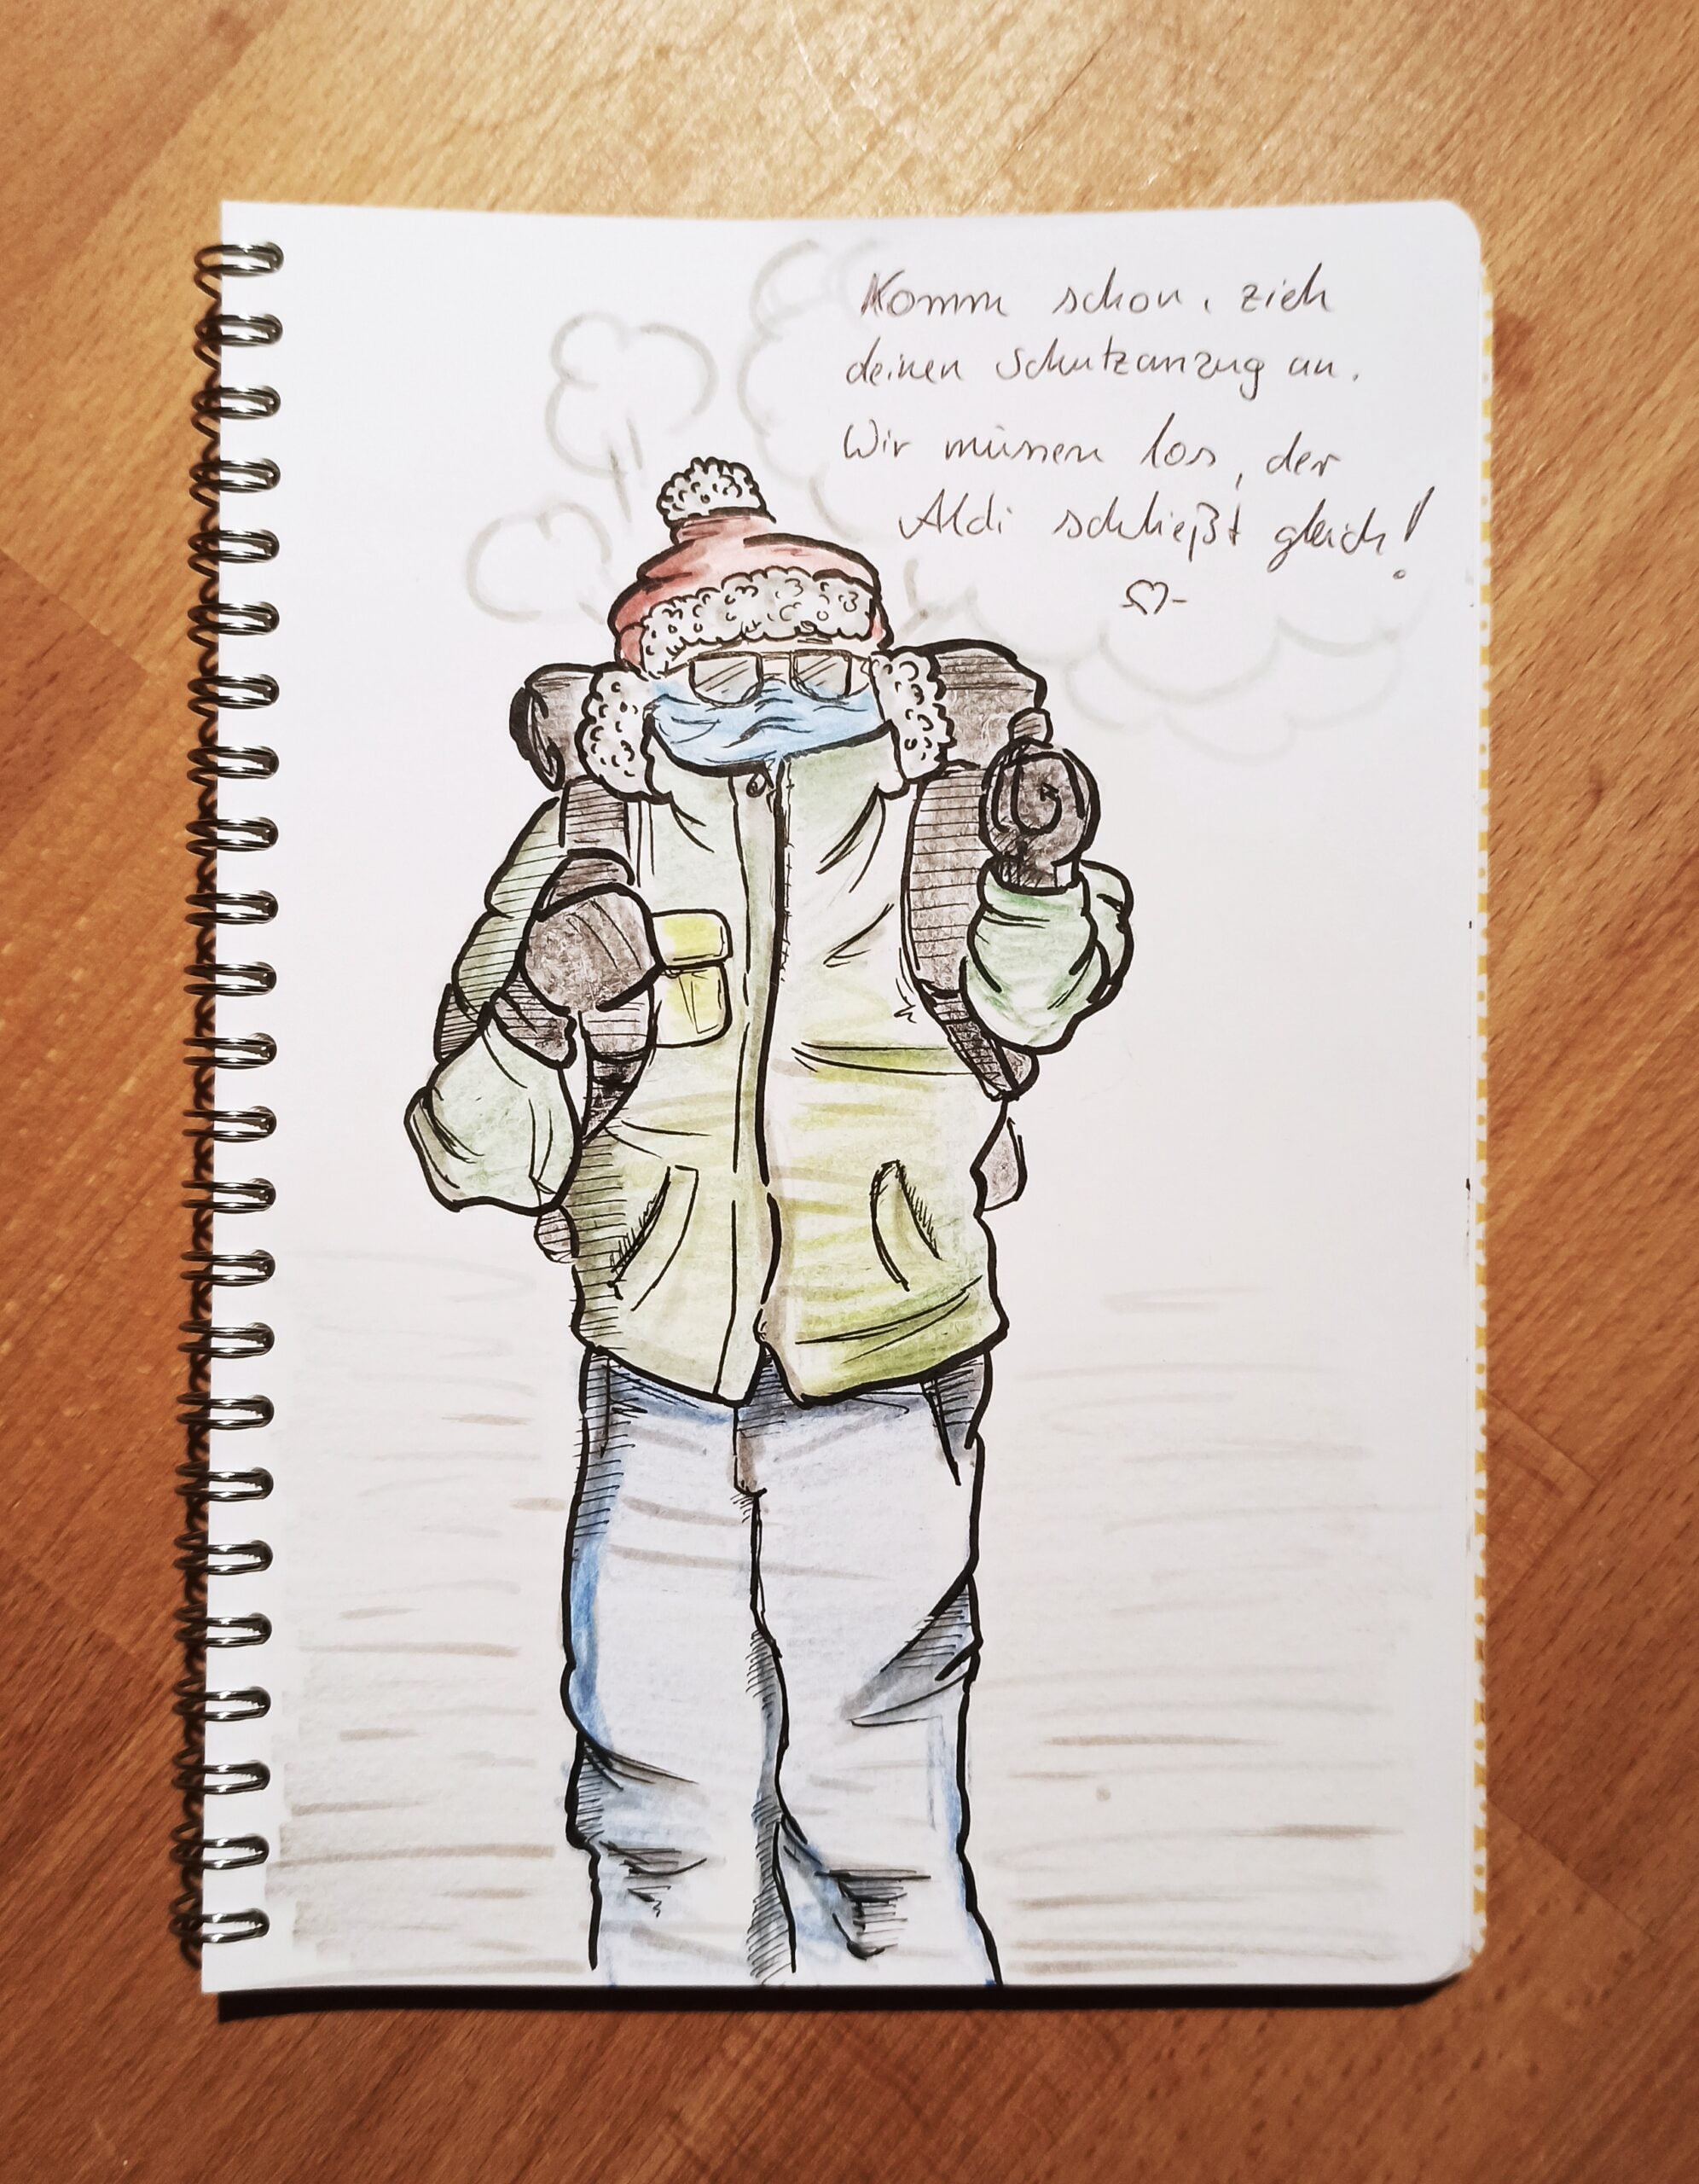 Komm schon, zieh
deinen Schutzanzug an.
Wir müssen los, der
Aldi schließt gleich!